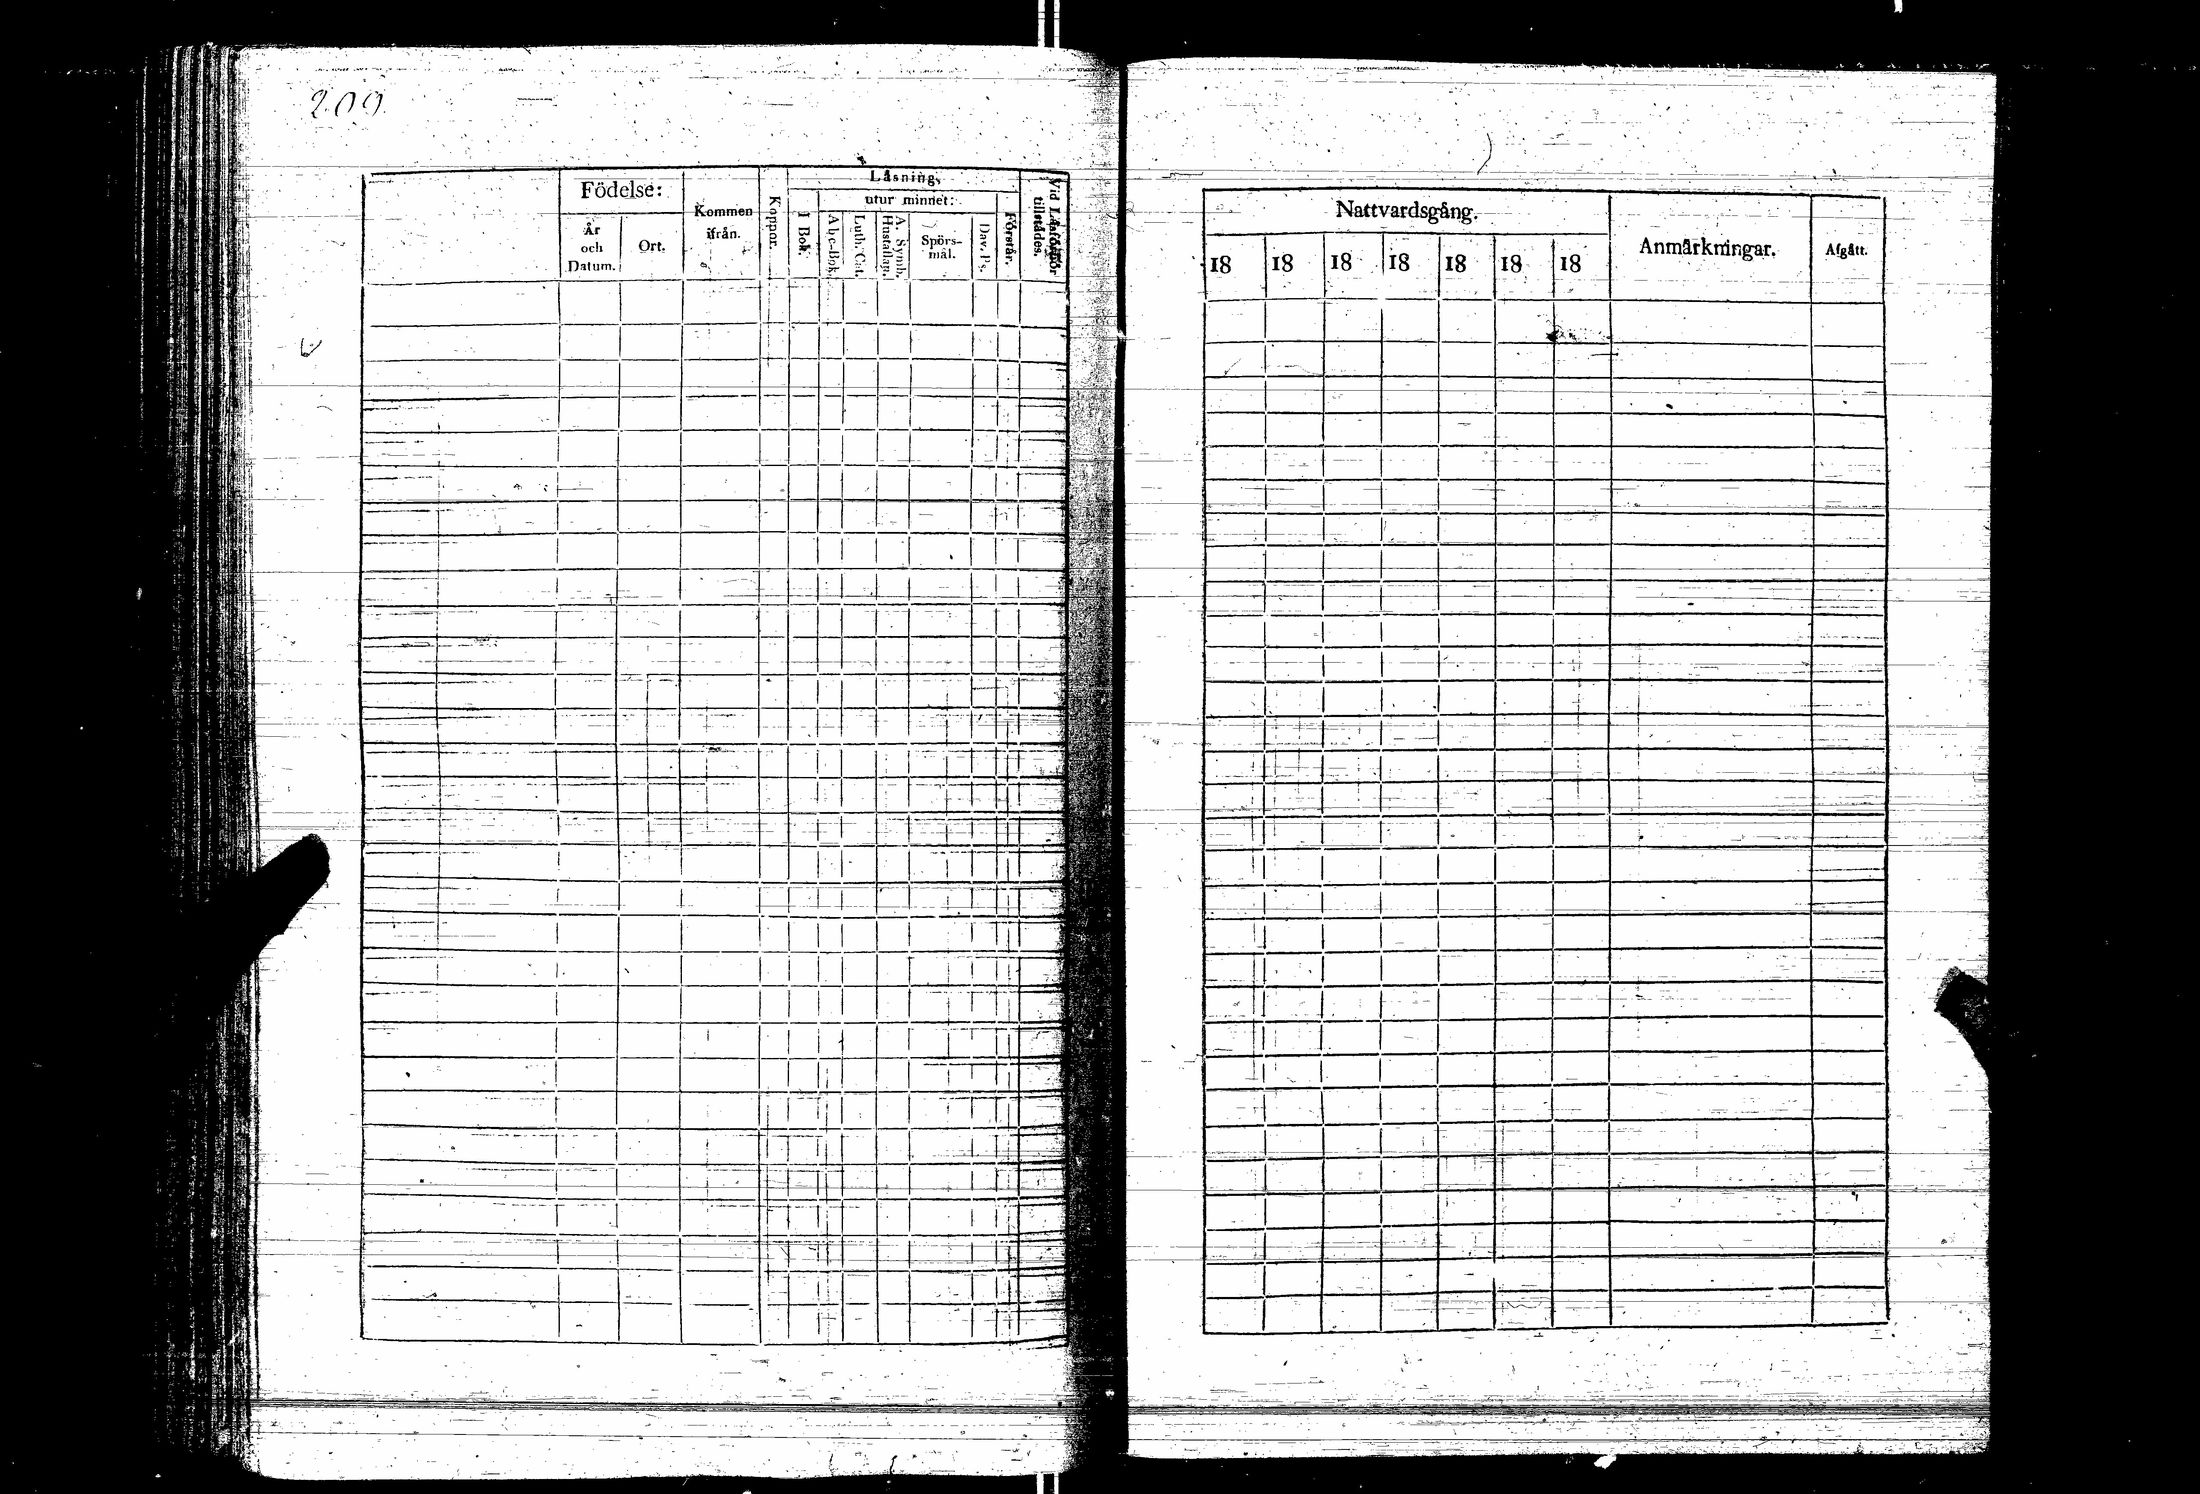 209
Födelse:
År
och
Datum.
Ort.
Kommen
ifrån.
Koppor.
Läsning,
I Bok.
utur minnet:
Abc-Bok.
Luth. Cat.
A. Symb.
Hustaflan.
Spörs-
mål.
Dav. Ps.
Förstår.
Vid Läsförhör
tillstädes.
Nattvardsgång.
18 18 18 18 18 18 18
Anmärkningar.
Afgått.